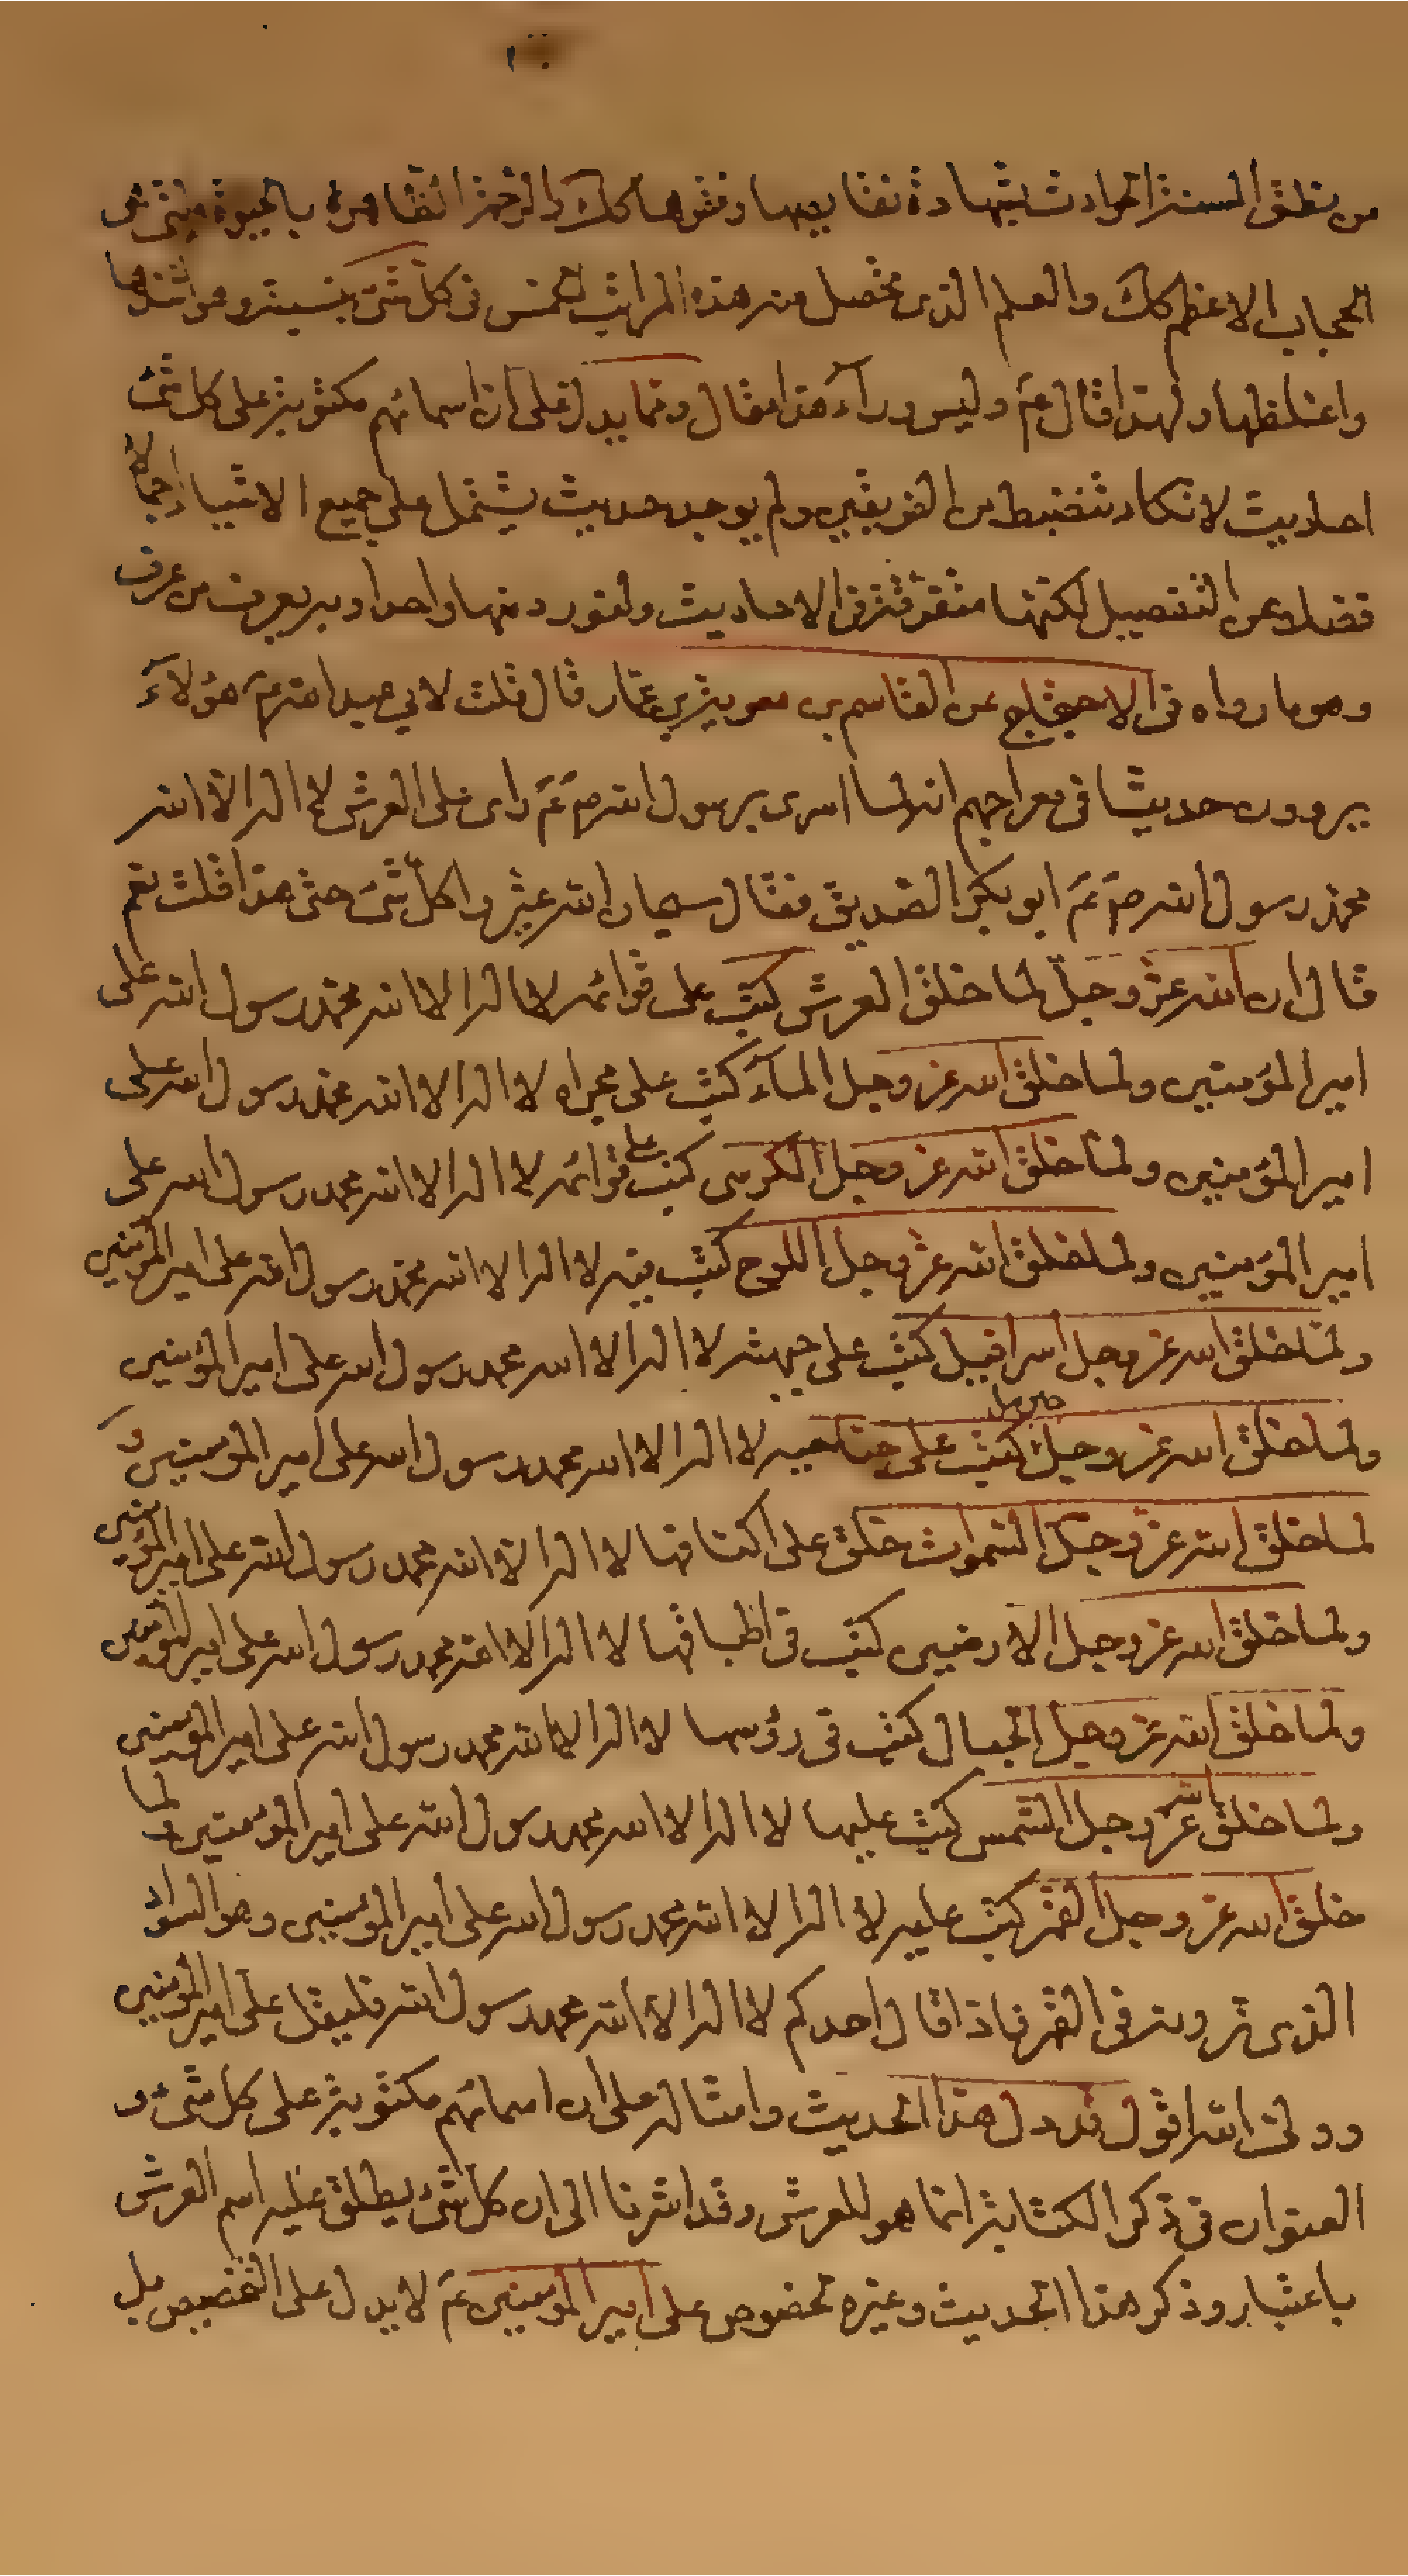 من تطلق السنة الحوادث بشهادة نقايصها ونقوها كك والرحمة الظاهرة بالحيوة
الحجاب الاعظم كك والعلم الذى يحصل من هذه المراتب الخمس فى كل شئ بنسبته ومن اشدها
واغلظها ولهذا قال عم وليس وراء هذا مقال ومما يدل على ان اسمائهم مكتوبة على كل شئ
احاديث لا تكاد تنضبط من الفريقين ولم يوجد حديث يشتمل على جميع الاشياء اجمالا
فضلا عن التفصيل لكنها متفرقة فى الاحاديث ولنورد منها واحدا وبه يعرف من عرف
وهو ما رواه فى الاحتجاج عن القاسم بن معوية بن عمار قال قلت لابي عبد الله عم هؤلاء
يروون حديثا فى معراجهم انه لما اسرى برسول الله ص عم راى على العرش لا اله الا الله
محمد رسول الله ص عم ابو بكر الصديق فقال سبحان الله غيروا كل شئ حتى هذا قلت نعم
قال ان الله عز وجل لما خلق العرش كتب على قوائمه لا اله الا الله محمد رسول الله على
امير المؤمنين ولما خلق الله عز وجل الماء كتب على مجراه لا اله الا الله محمد رسول الله على
امير المؤمنين ولما خلق الله عز وجل الكرسى كتب على قوائمه لا اله الا الله محمد رسول الله على
امير المؤمنين ولما خلق الله عز وجل اللوح كتب فيه لا اله الا الله محمد رسول الله على امير المؤمنين
ولما خلق الله عز وجل اسرافيل كتب على جبهته لا اله الا الله محمد رسول الله على امير المؤمنين
ولما خلق الله عز وجل جبرئيل كتب على جناحيه لا اله الا الله محمد رسول الله على امير المؤمنين و
لما خلق الله عز وجل السموات خلق على اكنافها لا اله الا الله محمد رسول الله على امير المؤمنين
ولما خلق الله عز وجل الارضين كتب فى اطباقها لا اله الا الله محمد رسول الله على امير المؤمنين
ولما خلق الله عز وجل الجبال كتب فى رؤسها لا اله الا الله محمد رسول الله على امير المؤمنين
ولما خلق الله عز وجل الشمس كتب عليها لا اله الا الله محمد رسول الله على امير المؤمنين ولما
خلق الله عز وجل القمر كتب عليه لا اله الا الله محمد رسول الله على امير المؤمنين وهو السواد
الذى ترونه فى القمر فاذا قال احدكم لا اله الا الله محمد رسول الله فليقل على امير المؤمنين
وولى الله اقول قد دل هذا الحديث وامثاله على ان اسمائهم مكتوبة على كل شئ و
العنوان فى ذكر الكتابة انما هو للعرش وقد اشرنا الى ان كل شئ يطلق عليه اسم العرش
باعتبار وذكر هذا الحديث وغيره بخصوص على امير المؤمنين عم لا يدل على التخصيص بل